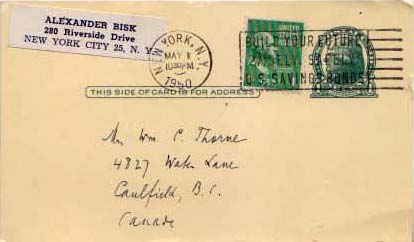 ALEXANDER BISK
280 Riverside Drive
NEW YORK CITY 25, N. Y.
NEW YORK, N.Y.
MAY 1
1950
BUILD YOUR FUTURE
U.S. SAVINGS BONDS
THIS SIDE OF CARD IS FOR ADDRESS
Mr Wm C. Thorne
4827 Water Lane
Caulfield, B.C.
Canada